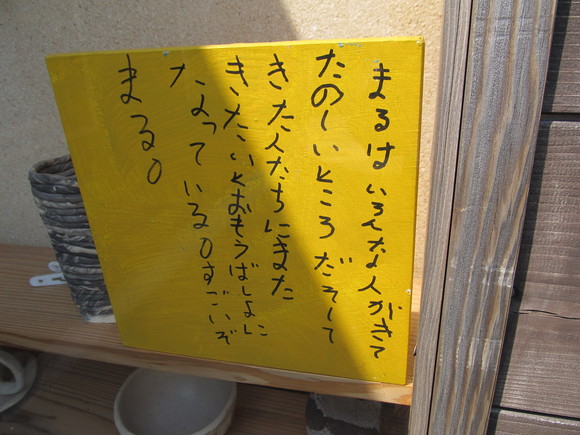 まるはいろんな人がきて
たのしいところだそして
きた人たちにまた
きたいとおもうばしょに
なっている。すごいぞ
まる。